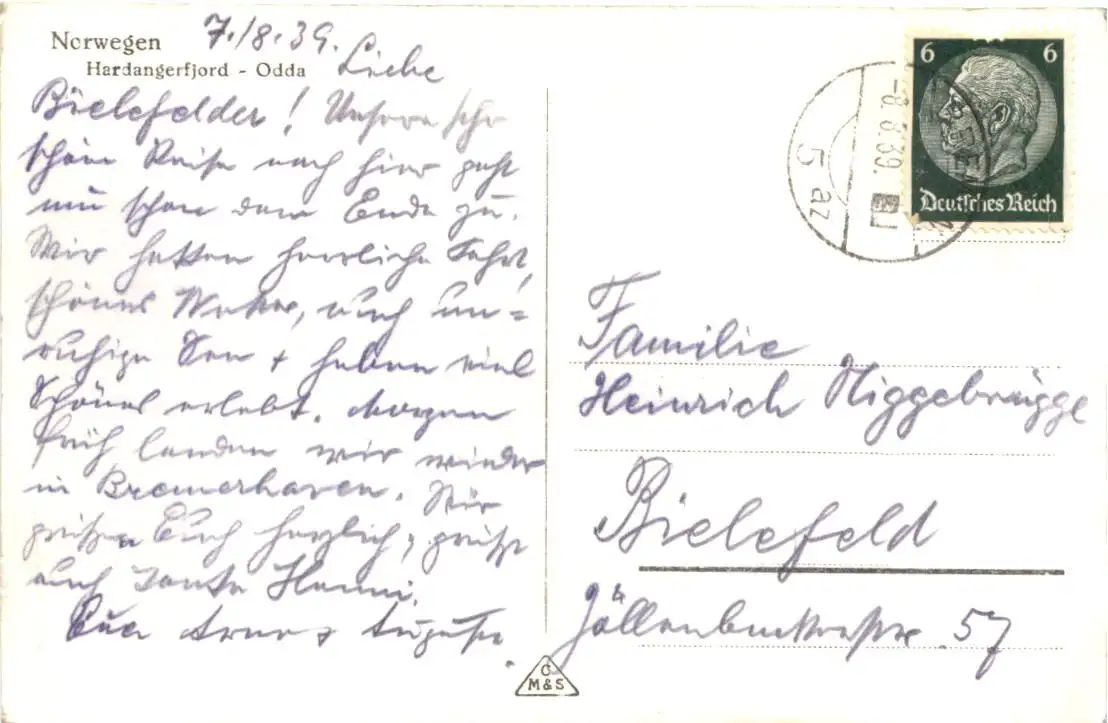 Norwegen 7./8.39.
Hardangerfjord - Odda Liebe
Bielefelder! Unsere sehr
schöne Reise nach hier geht
nun schon dem Ende zu.
Wir hatten herrliche Fahrt,
schönes Wetter, auch un=
ruhige See + haben viel
Schönes erlebt. Morgen
früh landen wir wieder
in Bremerhaven. Wir
grüßen Euch herzlich, grüßt
auch Tante Hanni.
Eure
6 6
Deutsches Reich
-8.8.39.
5 az
Familie
Heinrich Niggebrügge
Bielefeld
Jöllenbeckerstr. 57
C
M&S